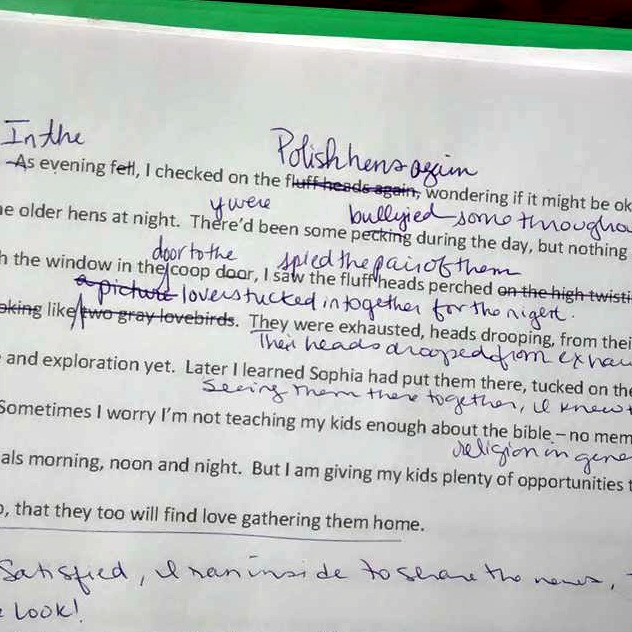 In the
Polish hens again
As evening fell, I checked on the fluff heads again, wondering if it might be ok
y were bullyied some through
e older hens at night. There'd been some pecking during the day, but nothing
door to the spied the pair of them
h the window in the coop door, I saw the fluff heads perched on the high twisti
a picture lovers tucked in together for the night.
oking like two gray lovebirds. They were exhausted, heads drooping, from thei
Their heads drooped from exhau
and exploration yet. Later I learned Sophia had put them there, tucked on the
Seeing them there together, I knew t
Sometimes I worry I'm not teaching my kids enough about the bible – no mem
religion in gene
als morning, noon and night. But I am giving my kids plenty of opportunities t
o, that they too will find love gathering them home.
Satisfied, I ran inside to share the news,
e Look!